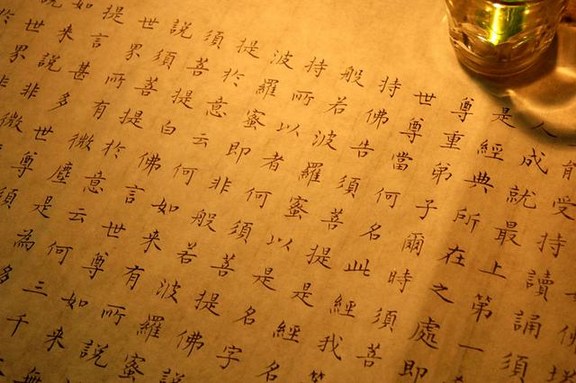 有受持讀誦須
人成就最上第一
是經典所在之處即
尊重弟子爾時須菩
世尊當何名此經我等
持佛告須菩提是經名
般若波羅蜜以是名字
持所以者何須菩提佛
波羅蜜即非般若波羅蜜
提於意云何如來有所說
須菩提白佛言世尊如來
說須菩提於意云何三千
世界所有微塵是為多
提言甚多世尊須
如來說非微
世界非